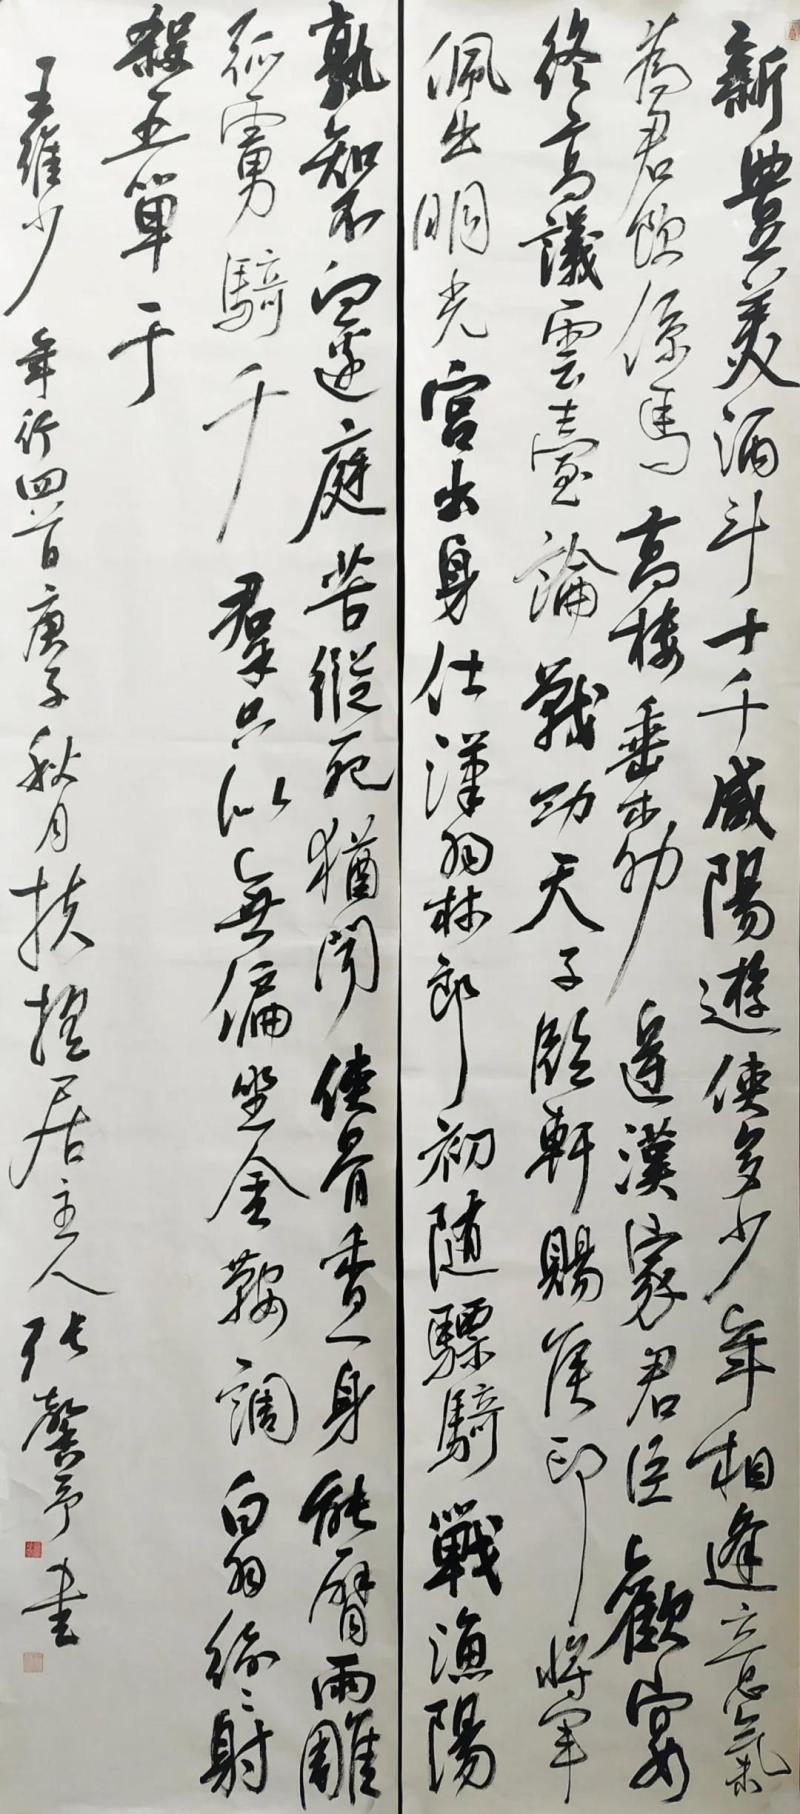 新豐美酒斗十千咸陽遊俠多少年相逢意氣
為君飲係馬高樓垂柳邊漢家君臣歡宴
終高議雲臺論戰功天子臨軒賜侯印將軍
佩出明光宮出身仕漢羽林郎初随驃騎戰漁陽
孰知不向邊庭苦縱死猶聞俠骨香一身能臂兩雕
弧虜騎千羣只似無偏坐金鞍調白羽紛〻射
殺五單于
王維少年行四首庚子秋月扶搖居主人張馨予書